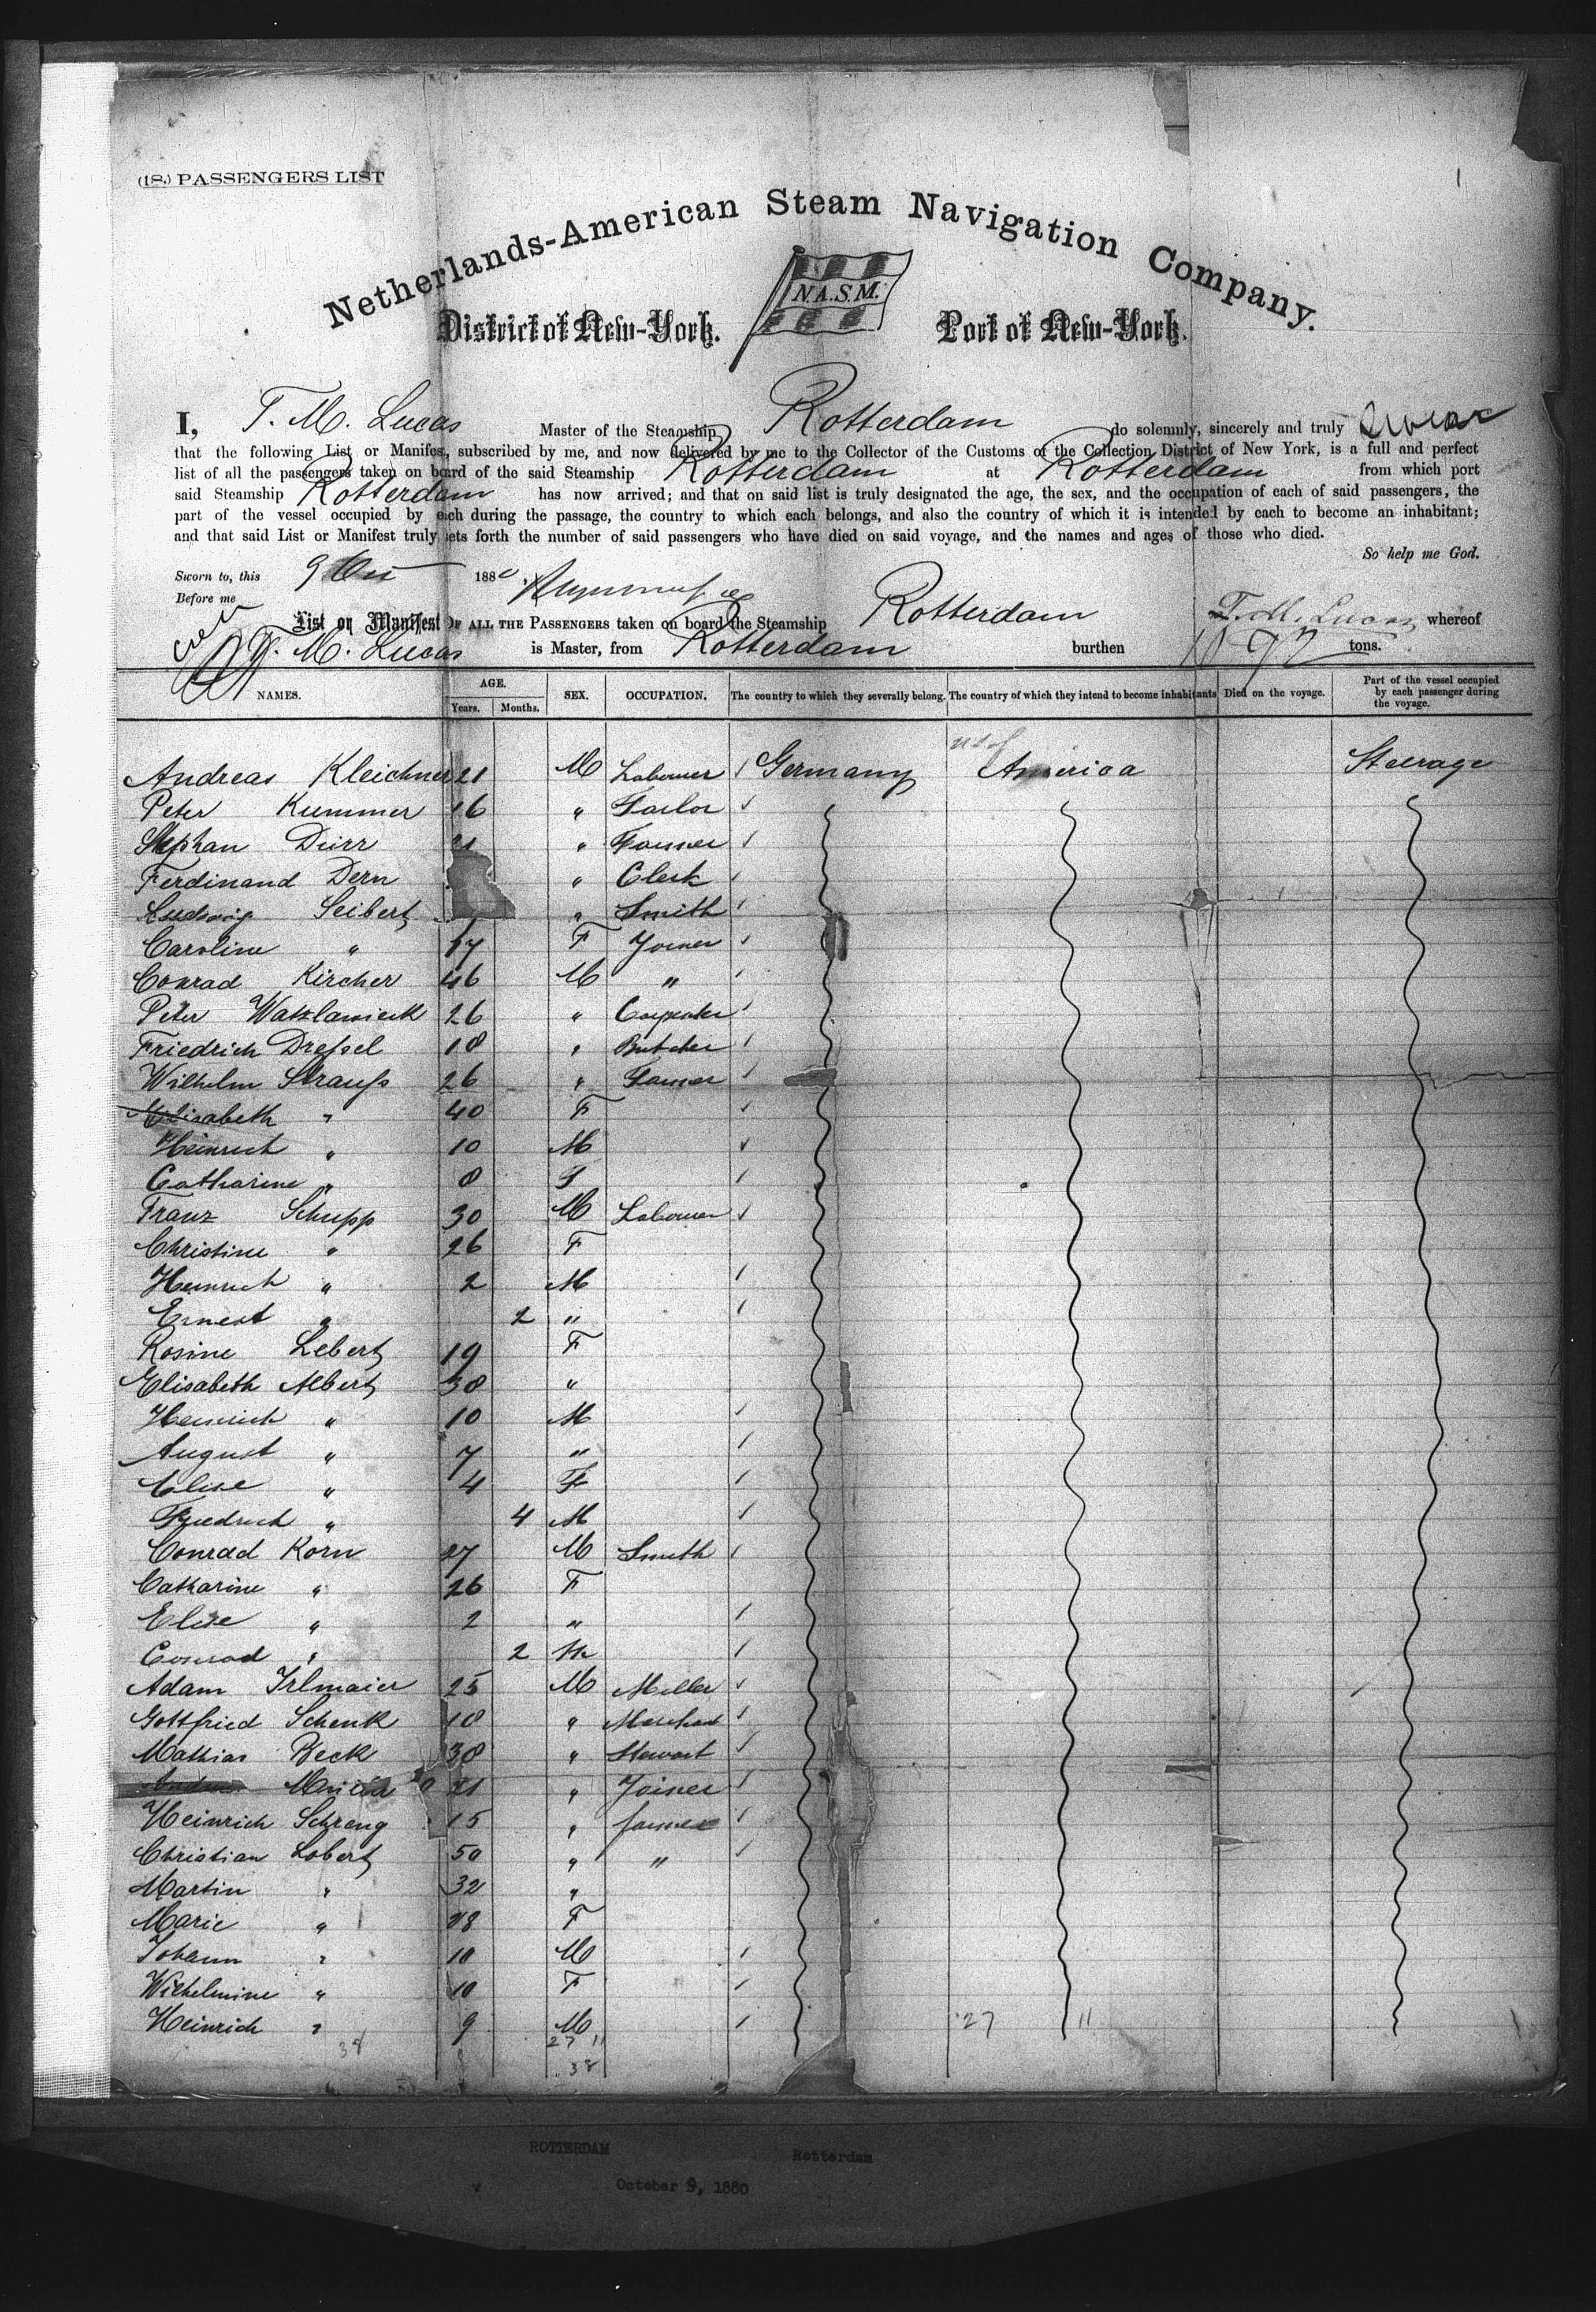 (18.) PASSENGERS LIST
1
Netherlands-American Steam Navigation Company.
N.A.S.M.
District of New-York. Port of New-York.
I, T. M. Lucas Master of the Steamship Rotterdam do solemnly, sincerely and truly swear
that the following List or Manifest, subscribed by me, and now delivered by me to the Collector of the Customs of the Collection District of New York, is a full and perfect
list of all the passengers taken on board of the said Steamship Rotterdam at Rotterdam from which port
said Steamship Rotterdam has now arrived; and that on said list is truly designated the age, the sex, and the occupation of each of said passengers, the
part of the vessel occupied by each during the passage, the country to which each belongs, and also the country of which it is intended by each to become an inhabitant;
and that said List or Manifest truly sets forth the number of said passengers who have died on said voyage, and the names and ages of those who died.
So help me God.
Sworn to, this 9 Oct 1880
Before me
List or Manifest OF ALL THE PASSENGERS taken on board the Steamship Rotterdam T. M. Lucas whereof
T. M. Lucas is Master, from Rotterdam burthen tons.
NAMES. AGE. Years. Months. SEX. OCCUPATION. The country to which they severally belong. The country of which they intend to become inhabitants Died on the voyage. Part of the vessel occupied by each passenger during the voyage.
Andreas Kleichner 21 M Labourer Germany America Steerage
Peter Kummer 16 " Tailor
Stephan Dürr 21 " Farmer
Ferdinand Dern " Clerk
Ludwig Seibert " Smith
Caroline " 17 F Joiner
Conrad Kircher 46 M "
Peter Watzlawieck 26 " Carpenter
Friedrich Dressel 18 " Butcher
Wilhelm Strauss 26 " Farmer
Elisabeth " 40 F
Heinrich " 10 M
Catharine " 8 F
Franz Schupp 30 M Labourer
Christine " 26 F
Heinrich " 2 M
Ernest " 2 "
Rosine Lebert 19 F
Elisabeth Albert 38 "
Heinrich " 10 M
August " 7 "
Elise " 4 F
Friedrich " 4 M
Conrad Korn 27 M Smith
Catharine " 26 F
Elise " 2 "
Conrad " 2 M
Adam Irlmaier 25 M Miller
Gottfried Schenk 18 "
Mathias Beck 38 " Stewart
21 " Joiner
Heinrich Schreng 15 " farmer
Christian Lobert 50 " "
Martin " 32 "
Marie " 28 F
Johann " 10 M
Wilhelmine " 10 F
Heinrich " 9 M
27 11
38 27 11
38
ROTTERDAM Rotterdam
October 9, 1880